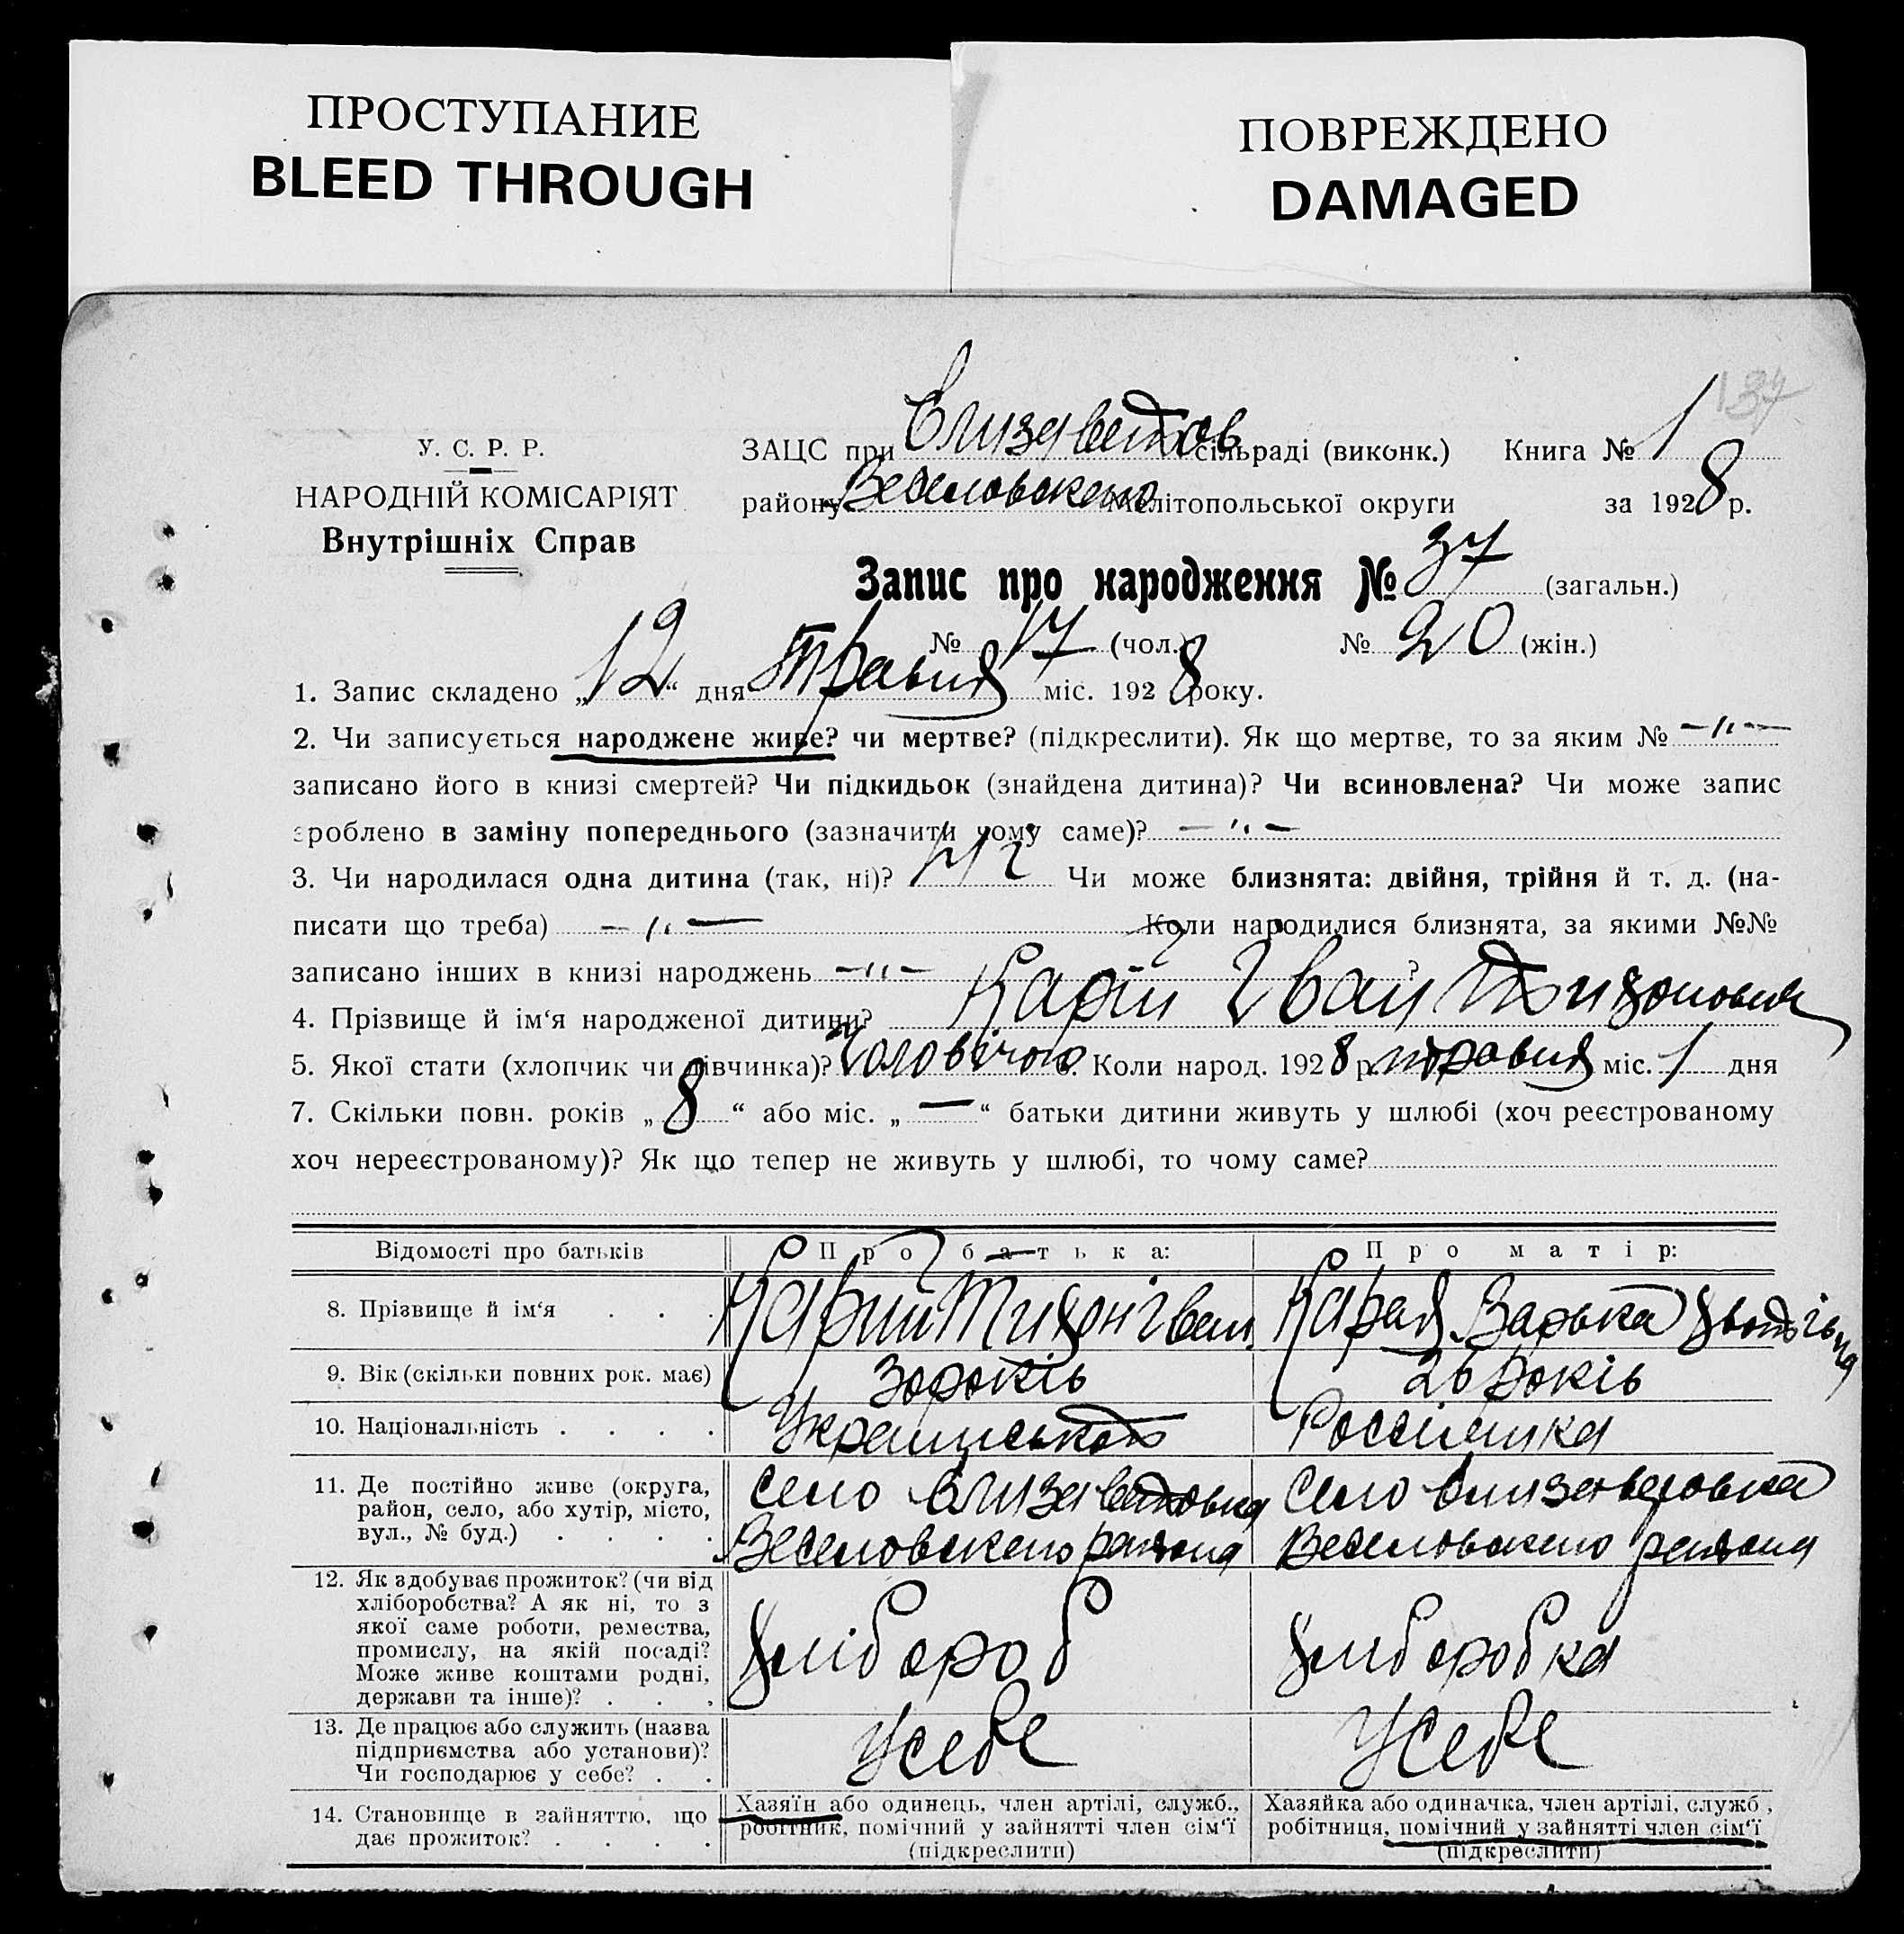 ПРОСТУПАНИЕ
BLEED THROUGH
ПОВРЕЖДЕНО
DAMAGED
137
У. С. Р. Р.
НАРОДНІЙ КОМІСАРІЯТ
Внутрішніх Справ
ЗАЦС при Елизаветов сільраді (виконк.) Книга № 1
району Веселовскено Мелітопольської округи за 1928 р.
Запис про народження № 37 (загальн.)
№ 17 (чол.) № 20 (жін.)
1. Запис складено „12“ дня Травня міс. 1928 року.
2. Чи записується народжене живе? чи мертве? (підкреслити). Як що мертве, то за яким № —"—
записано його в книзі смертей? Чи підкидьок (знайдена дитина)? Чи всиновлена? Чи може запис
зроблено в заміну попереднього (зазначити чому саме)? —"—
3. Чи народилася одна дитина (так, ні)? Чи може близнята: двійня, трійня й т. д. (на-
писати що треба) —"— Коли народилися близнята, за якими №№
записано інших в книзі народжень —"—
4. Прізвище й ім‘я народженої дитини? Карій Іван Тихонович
5. Якої стати (хлопчик чи дівчинка)? Чоловічою. Коли народ. 1928 р. травня міс. 1 дня
7. Скільки повн. років „8“ або міс. „—“ батьки дитини живуть у шлюбі (хоч реєстрованому
хоч нереєстрованому)? Як що тепер не живуть у шлюбі, то чому саме?
Відомості про батьків Про батька: Про матір:
8. Прізвище й ім‘я . . . Карий Тихон Іван. Карая Варька
9. Вік (скільки повних рок. має) 30 років 26 років
10. Національність . . . . Россіянка
11. Де постійно живе (округа,
район, село, або хутір, місто,
вул., № буд.) . . . .
село Елизаветовка
Веселовскено района
село Елизаветовка
Веселовскено района
12. Як здобуває прожиток? (чи від
хліборобства? А як ні, то з
якої саме роботи, ремества,
промислу, на якій посаді?
Може живе коштами родні,
держави та інше)? . . .
Хлібороб
Хлиборобка
13. Де працює або служить (назва
підприємства або установи)?
Чи господарює у себе? . .
У себе
У себе
14. Становище в зайняттю, що
дає прожиток? . . . .
Хазяїн або одинець, член артілі, служб.,
робітник, помічний у зайнятті член сім‘ї
(підкреслити)
Хазяйка або одиначка, член артілі, служб.,
робітниця, помічний у зайнятті член сім‘ї
(підкреслити)